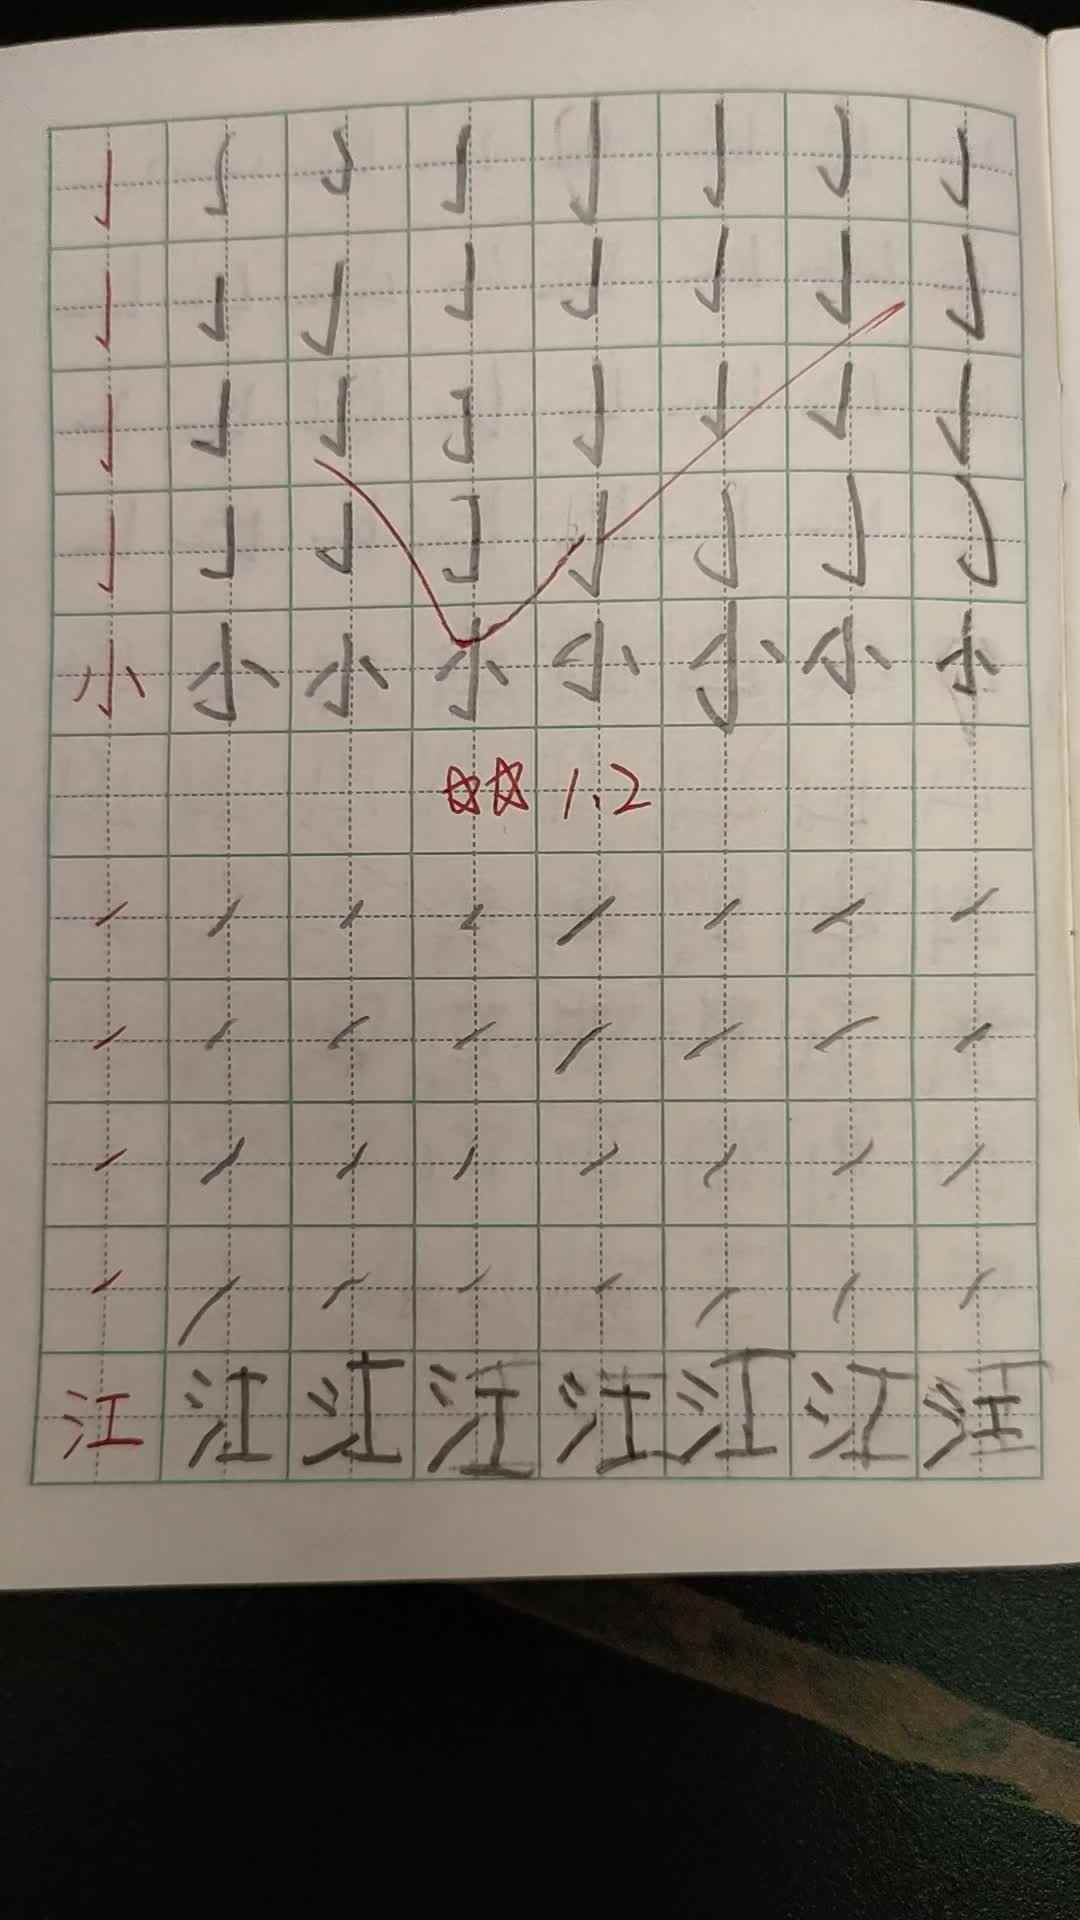 亅亅亅亅亅亅亅亅
亅亅亅亅亅亅亅亅
亅亅亅亅亅亅亅亅
亅亅亅亅亅亅亅亅
小小小小小小小小
☆☆ 1.2
㇀㇀㇀㇀㇀㇀㇀㇀
㇀㇀㇀㇀㇀㇀㇀㇀
㇀㇀㇀㇀㇀㇀㇀㇀
㇀㇀㇀㇀㇀㇀㇀㇀
江江江江江江江江